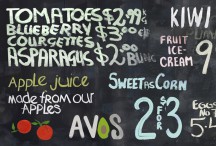 TOMATOES $2.99
BLUEBERRY $3
COURGETTES
ASPARAGUS $2.00
KIWI
FRUIT
ICE-
CREAM
9
Apple juice
made from our
Apples
SWEET AS CORN
2 FOR $3
AVOS
EGGS